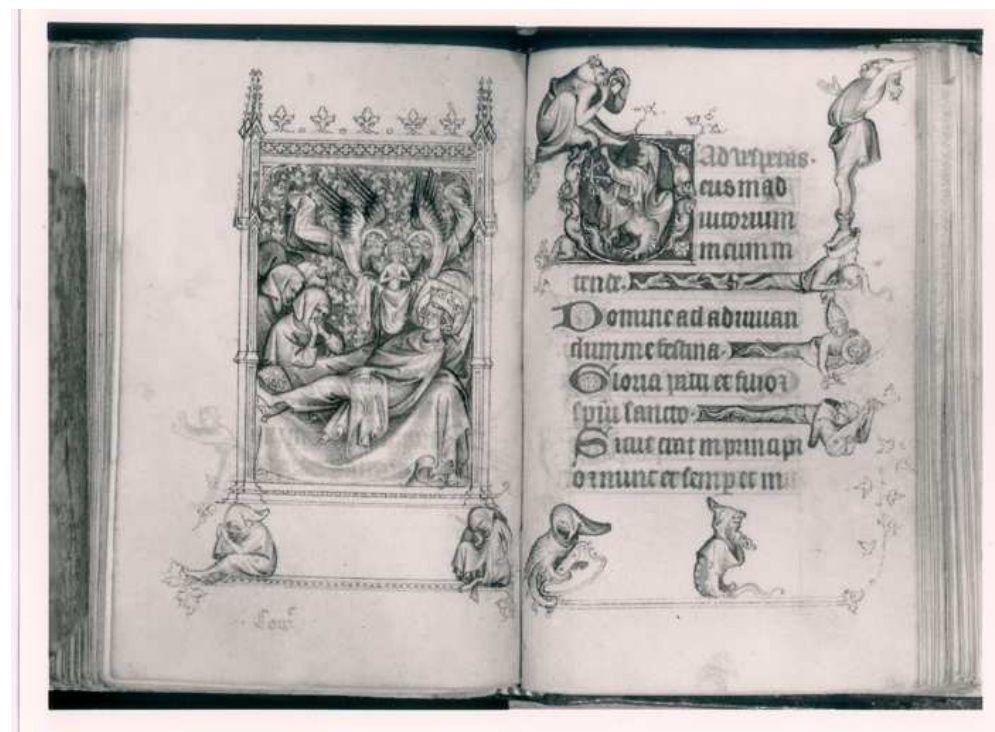 Ad vesperas.
eus in ad
iutorium
meum in
tende.
Domine ad adiuuan
dum me festina.
Gloria patri et filio
spiritui sancto.
Sicut erat in principi
o et nunc et semper et in